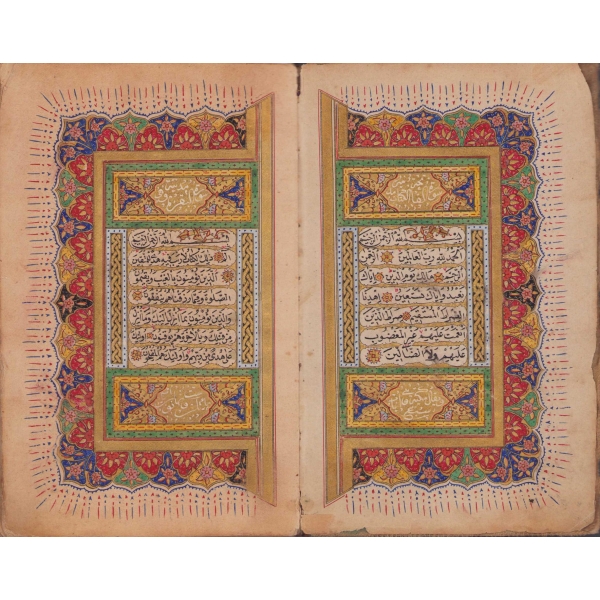 بسم الله الرحمن الرحيم
الحمد لله رب العالمين الرحمن
الرحيم مالك يوم الدين اياك
نعبد واياك نستعين اهدنا
الصراط المستقيم صراط الذين
انعمت عليهم غير المغضوب
عليهم ولا الضالين
بسم الله الرحمن الرحيم
الم ذلك الكتاب لا ريب فيه هدى للمتقين
الذين يؤمنون بالغيب ويقيمون
الصلوة ومما رزقناهم ينفقون
والذين يؤمنون بما انزل اليك وما انزل
من قبلك وبالاخرة هم يوقنون اولئك
على هدى من ربهم واولئك هم المفلحون